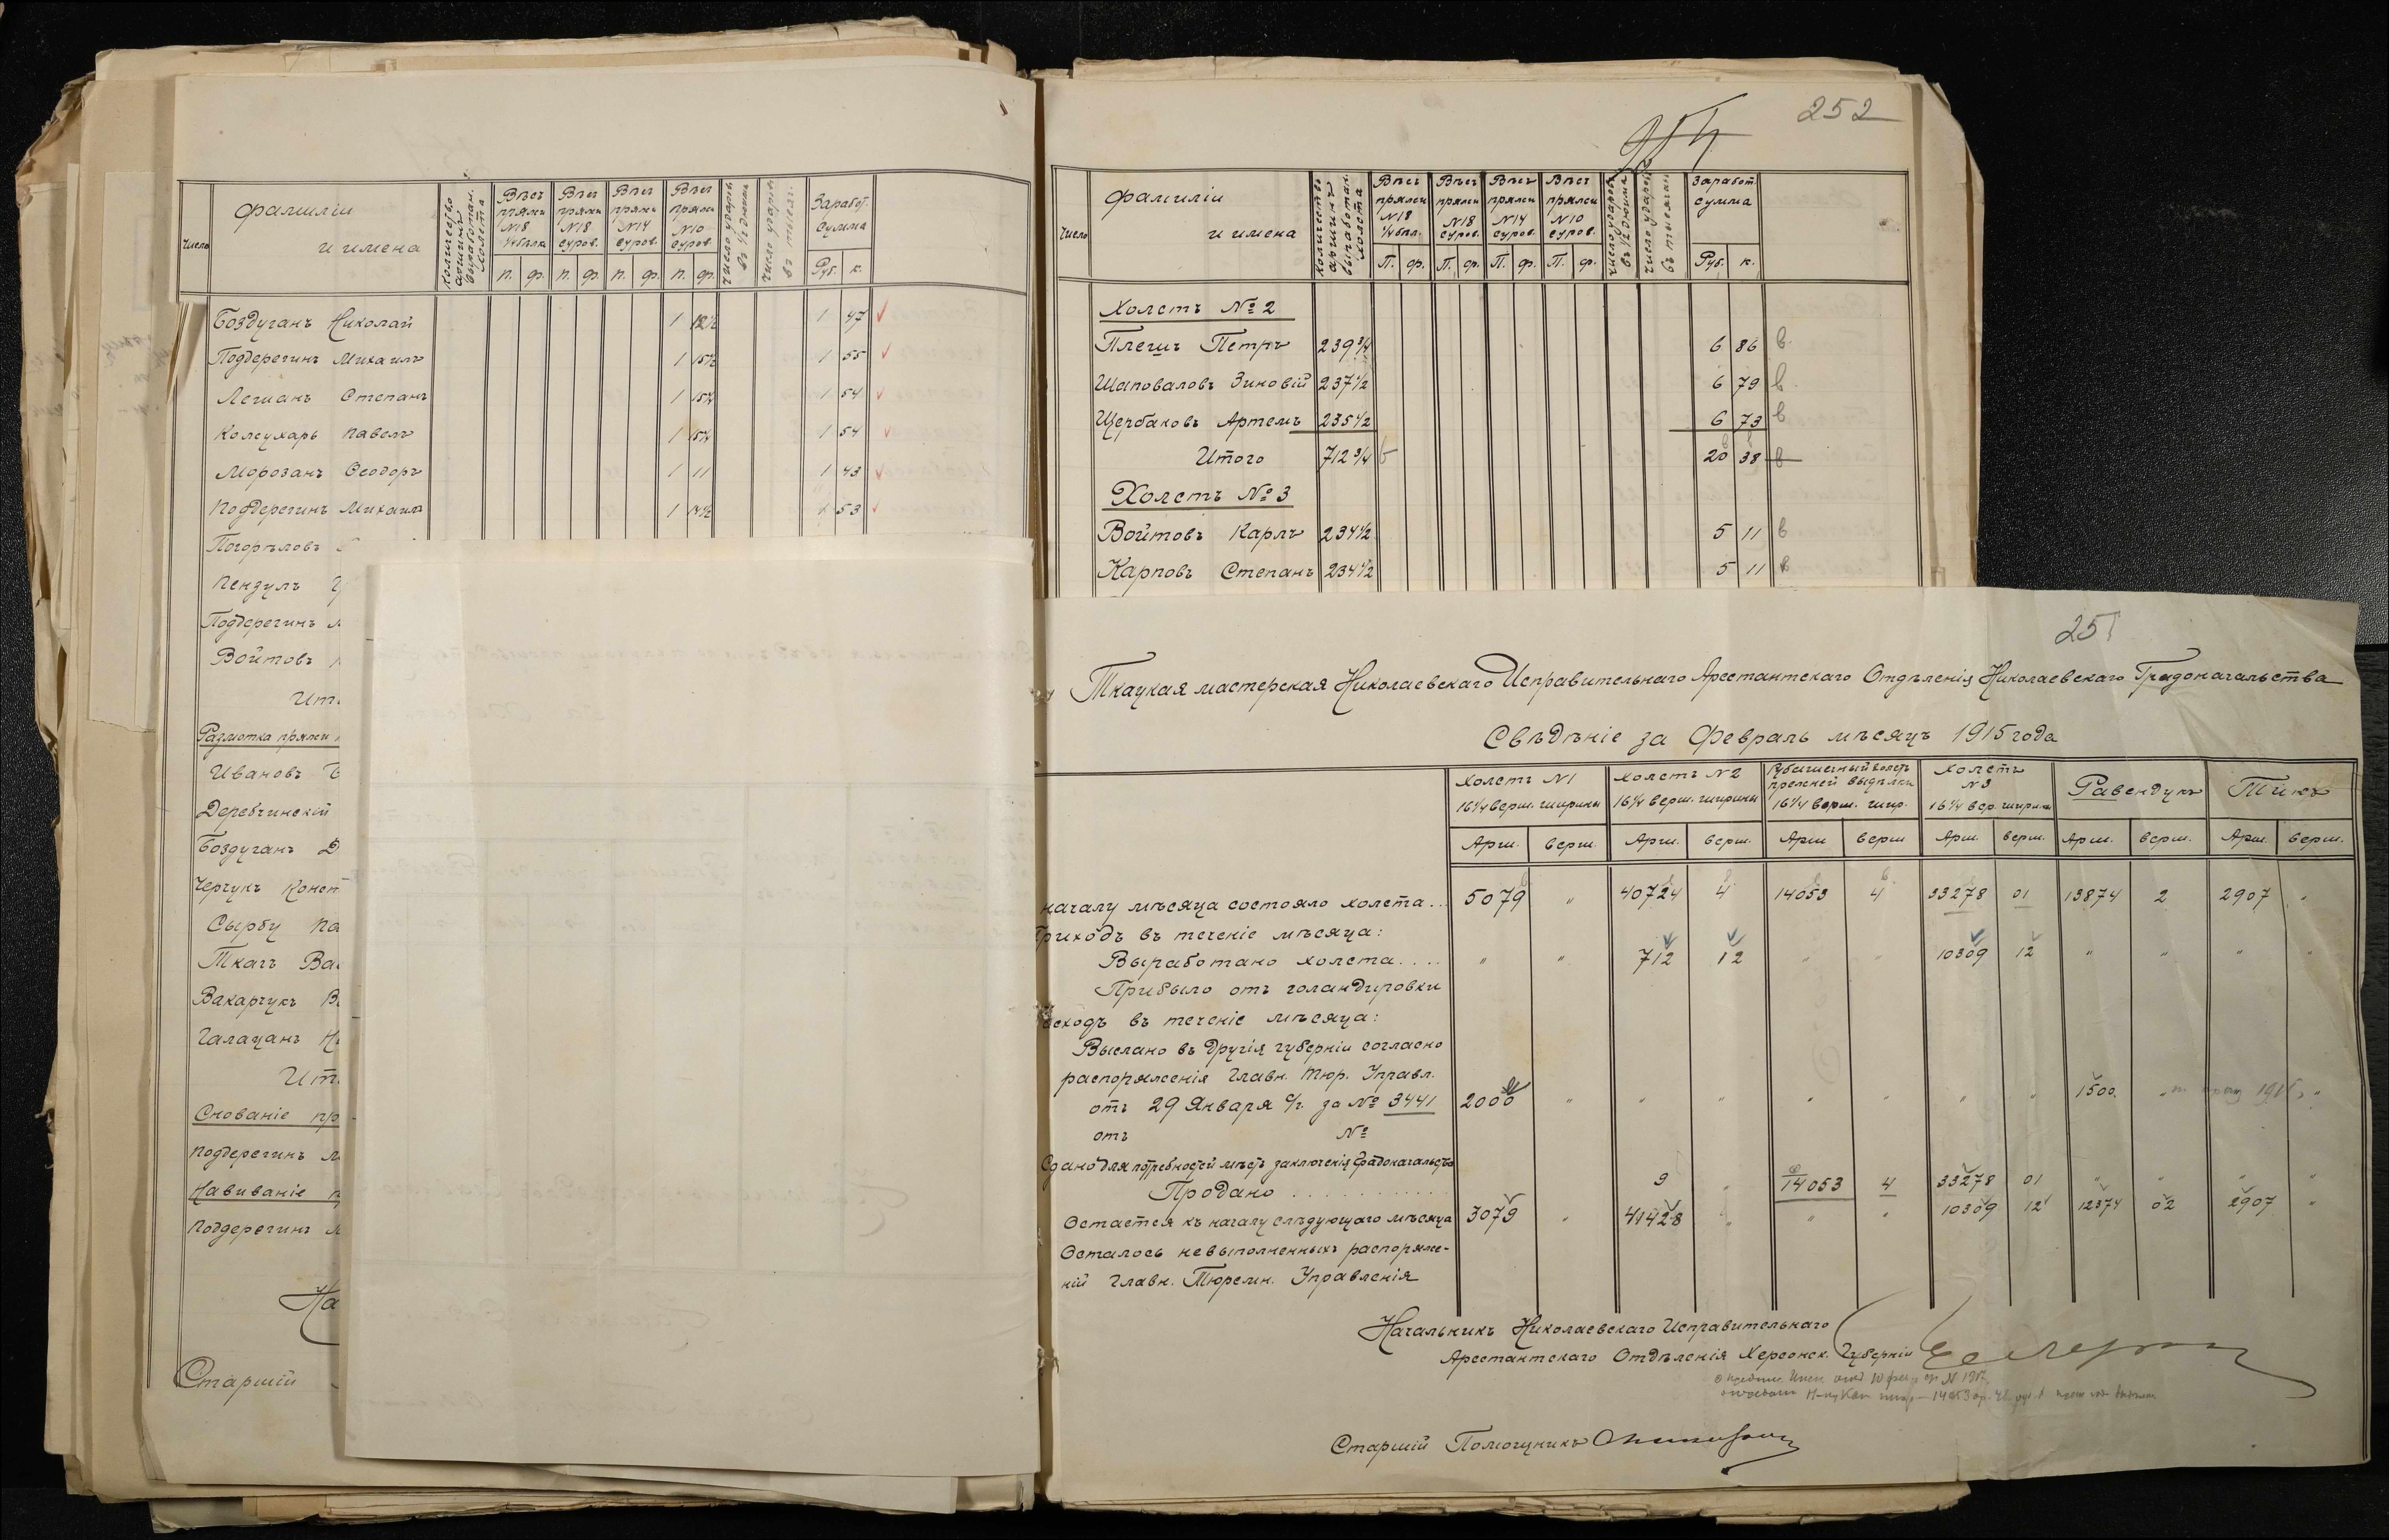 Число
Фамиліи
и имена
Количество аршинъ выработан. холста
Вѣсъ пряжи №18 1/4 блл.
Вѣсъ пряжи №18 суров.
Вѣсъ пряжи №14 суров.
Вѣсъ пряжи №10 суров.
Число ударовъ въ 1/2 дюйма
Число ударовъ въ тысяч.
Заработ. сумма
п. ф. п. ф. п. ф. п. ф. Руб. к.
Боздуганъ Николай 1 1 47
Поддерегинъ Михаилъ 1 15½ 1 55
Легианъ Степанъ 1 15¼ 1 54
Колсухарь Павелъ 1 15¼ 1 54
Морозанъ Ѳеодоръ 1 11 1 43
Поддерегинъ Михаилъ 1 14½ 1 53
Погорѣловъ
Пензулъ
Поддерегинъ
Войтовъ
Ит
Размотка пряжи
Ивановъ
Деребчинскій
Боздуганъ
Черчукъ Конст
Сырбу Па
Ткачъ Ва
Вакарчукъ В
Галацанъ
Ит
Снованіе пр
Поддерегинъ
Навиваніе
Поддерегинъ
На
Старшій
252
Число
Фамиліи
и имена
Количество аршинъ выработан. холста
Вѣсъ пряжи №18 1/4 бпл.
Вѣсъ пряжи №18 суров.
Вѣсъ пряжи №14 суров.
Вѣсъ пряжи №10 суров.
Число ударовъ въ 1/2 дюйма
Число ударовъ въ тысячахъ
Заработ. сумма
П. ф. П. ф. П. ф. П. ф. Руб. к.
Холстъ № 2
Плешъ Петръ 239¾ 6 86
Шаповаловъ Зиновій 237½ 6 79
Щербаковъ Артемъ 235½ 6 73
Итого 712¾ 20 38
Холстъ № 3
Войтовъ Карлъ 234½ 5 11
Карповъ Степанъ 234½ 5 11
251
Ткацкая мастерская Николаевскаго Исправительнаго Арестантскаго Отдѣленія Николаевскаго Градоначальства
Свѣдѣніе за Февраль мѣсяцъ 1915 года
Холстъ №1 16¼ верш. ширины
Холстъ №2 16¼ верш. ширины
Рубашечный холстъ прежней выдѣлки 16¼ верш. шир.
Холстъ №3 16¼ вер. ширины
Равендукъ
Тикъ
Арш. верш. Арш. верш. Арш верш Арш. верш. Арш. верш. Арш. верш.
началу мѣсяца состояло холста.. 5079 " 40724 4 14053 4 33278 01 13874 2 2907 "
риходъ въ теченіе мѣсяца:
Выработано холста.... " " 712 12 " " 10309 12 " " " "
Прибыло отъ голандировки
сходъ въ теченіе мѣсяца:
Выслано въ другія губерніи согласно
распоряженія Главн. Тюр. Управл.
отъ 29 Января с/г. за № 3441 2000 " " " " " " " 1500 " "
отъ №
Сдано для потребностей мѣстъ заключенія Градоначальства
Продано............ 9 " 14053 4 33278 01 " " " "
Остается къ началу слѣдующаго мѣсяца 3079 " 41428 " " " 10309 12 12374 02 2907 "
Осталось невыполненныхъ распоряже-
ній Главн. Тюремн. Управленія
Начальникъ Николаевскаго Исправительнаго
Арестантскаго Отдѣленія Херсонск. Губерніи
Старшій Помощникъ